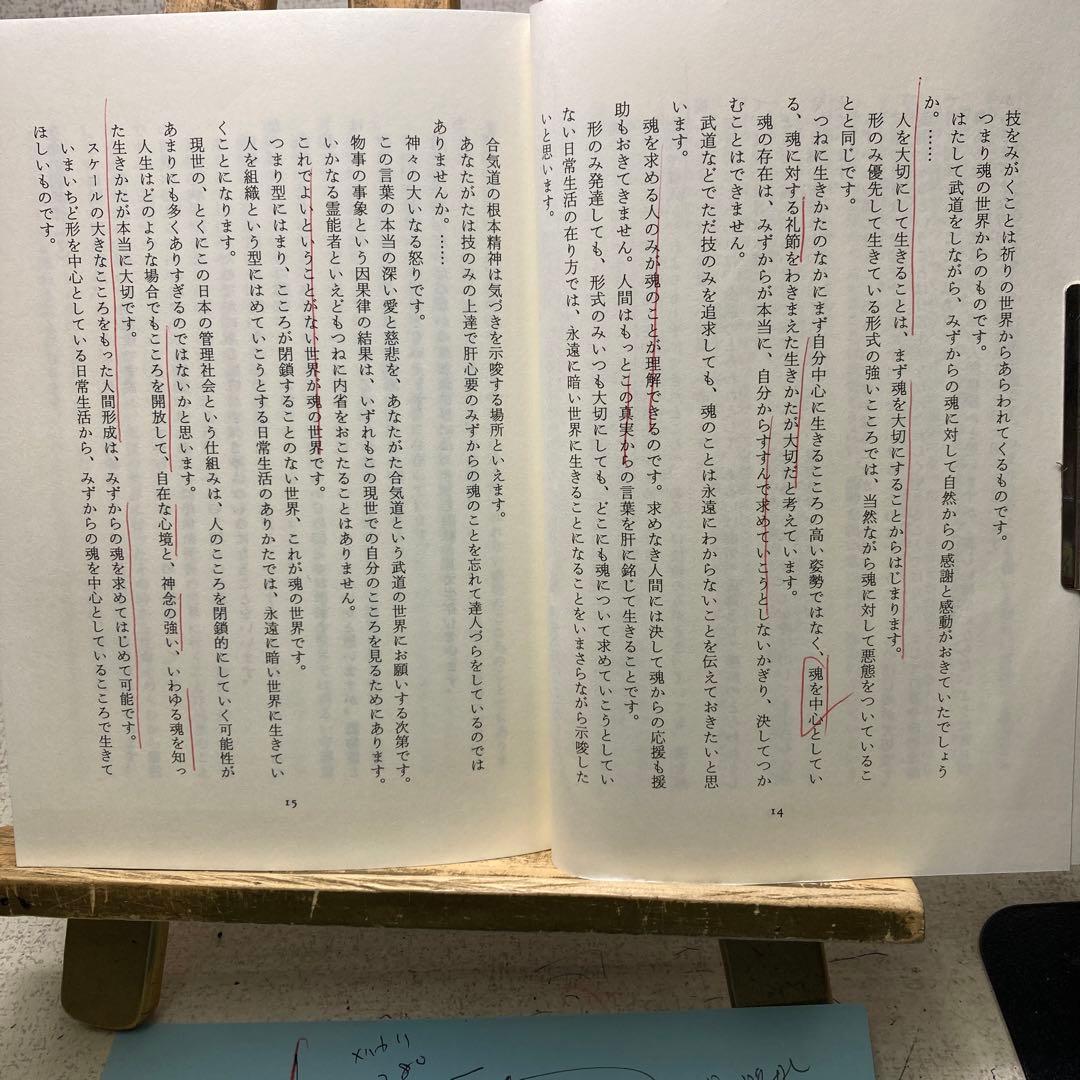 技をみがくことは祈りの世界からあらわれてくるものです。
つまり魂の世界からのものです。
はたして武道をしながら、みずからの魂に対して自然からの感謝と感動がおきていたでしょう
か。……
人を大切にして生きることは、まず魂を大切にすることからはじまります。
形のみ優先して生きている形式の強いこころでは、当然ながら魂に対して悪態をついているこ
とと同じです。
つねに生きかたのなかにまず自分中心に生きるこころの高い姿勢ではなく、魂を中心としてい
る、魂に対する礼節をわきまえた生きかたが大切だと考えています。
魂の存在は、みずからが本当に、自分からすすんで求めていこうとしないかぎり、決してつか
むことはできません。
武道などでただ技のみを追求しても、魂のことは永遠にわからないことを伝えておきたいと思
います。
魂を求める人のみが魂のことが理解できるのです。求めなき人間には決して魂からの応援も援
助もおきてきません。人間はもっとこの真実からの言葉を肝に銘じて生きることです。
形のみ発達しても、形式のみいつも大切にしても、どこにも魂について求めていこうとしてい
ない日常生活の在り方では、永遠に暗い世界に生きることになることをいまさらながら示唆した
いと思います。
14
合気道の根本精神は気づきを示唆する場所といえます。
あなたがたは技のみの上達で肝心要のみずからの魂のことを忘れて達人づらをしているのでは
ありませんか。……
神々の大いなる怒りです。
この言葉の本当の深い愛と慈悲を、あなたがた合気道という武道の世界にお願いする次第です。
物事の事象という因果律の結果は、いずれもこの現世での自分のこころを見るためにあります。
いかなる霊能者といえどもつねに内省をおこたることはありません。
これでよいということがない世界が魂の世界です。
つまり型にはまり、こころが閉鎖することのない世界、これが魂の世界です。
人を組織という型にはめていこうとする日常生活のありかたでは、永遠に暗い世界に生きてい
くことになります。
現世の、とくにこの日本の管理社会という仕組みは、人のこころを閉鎖的にしていく可能性が
あまりにも多くありすぎるのではないかと思います。
人生はどのような場合でもこころを開放して、自在な心境と、神念の強い、いわゆる魂を知っ
た生きかたが本当に大切です。
スケールの大きなこころをもった人間形成は、みずからの魂を求めてはじめて可能です。
いまいちど形を中心としている日常生活から、みずからの魂を中心としているこころで生きて
ほしいものです。
15